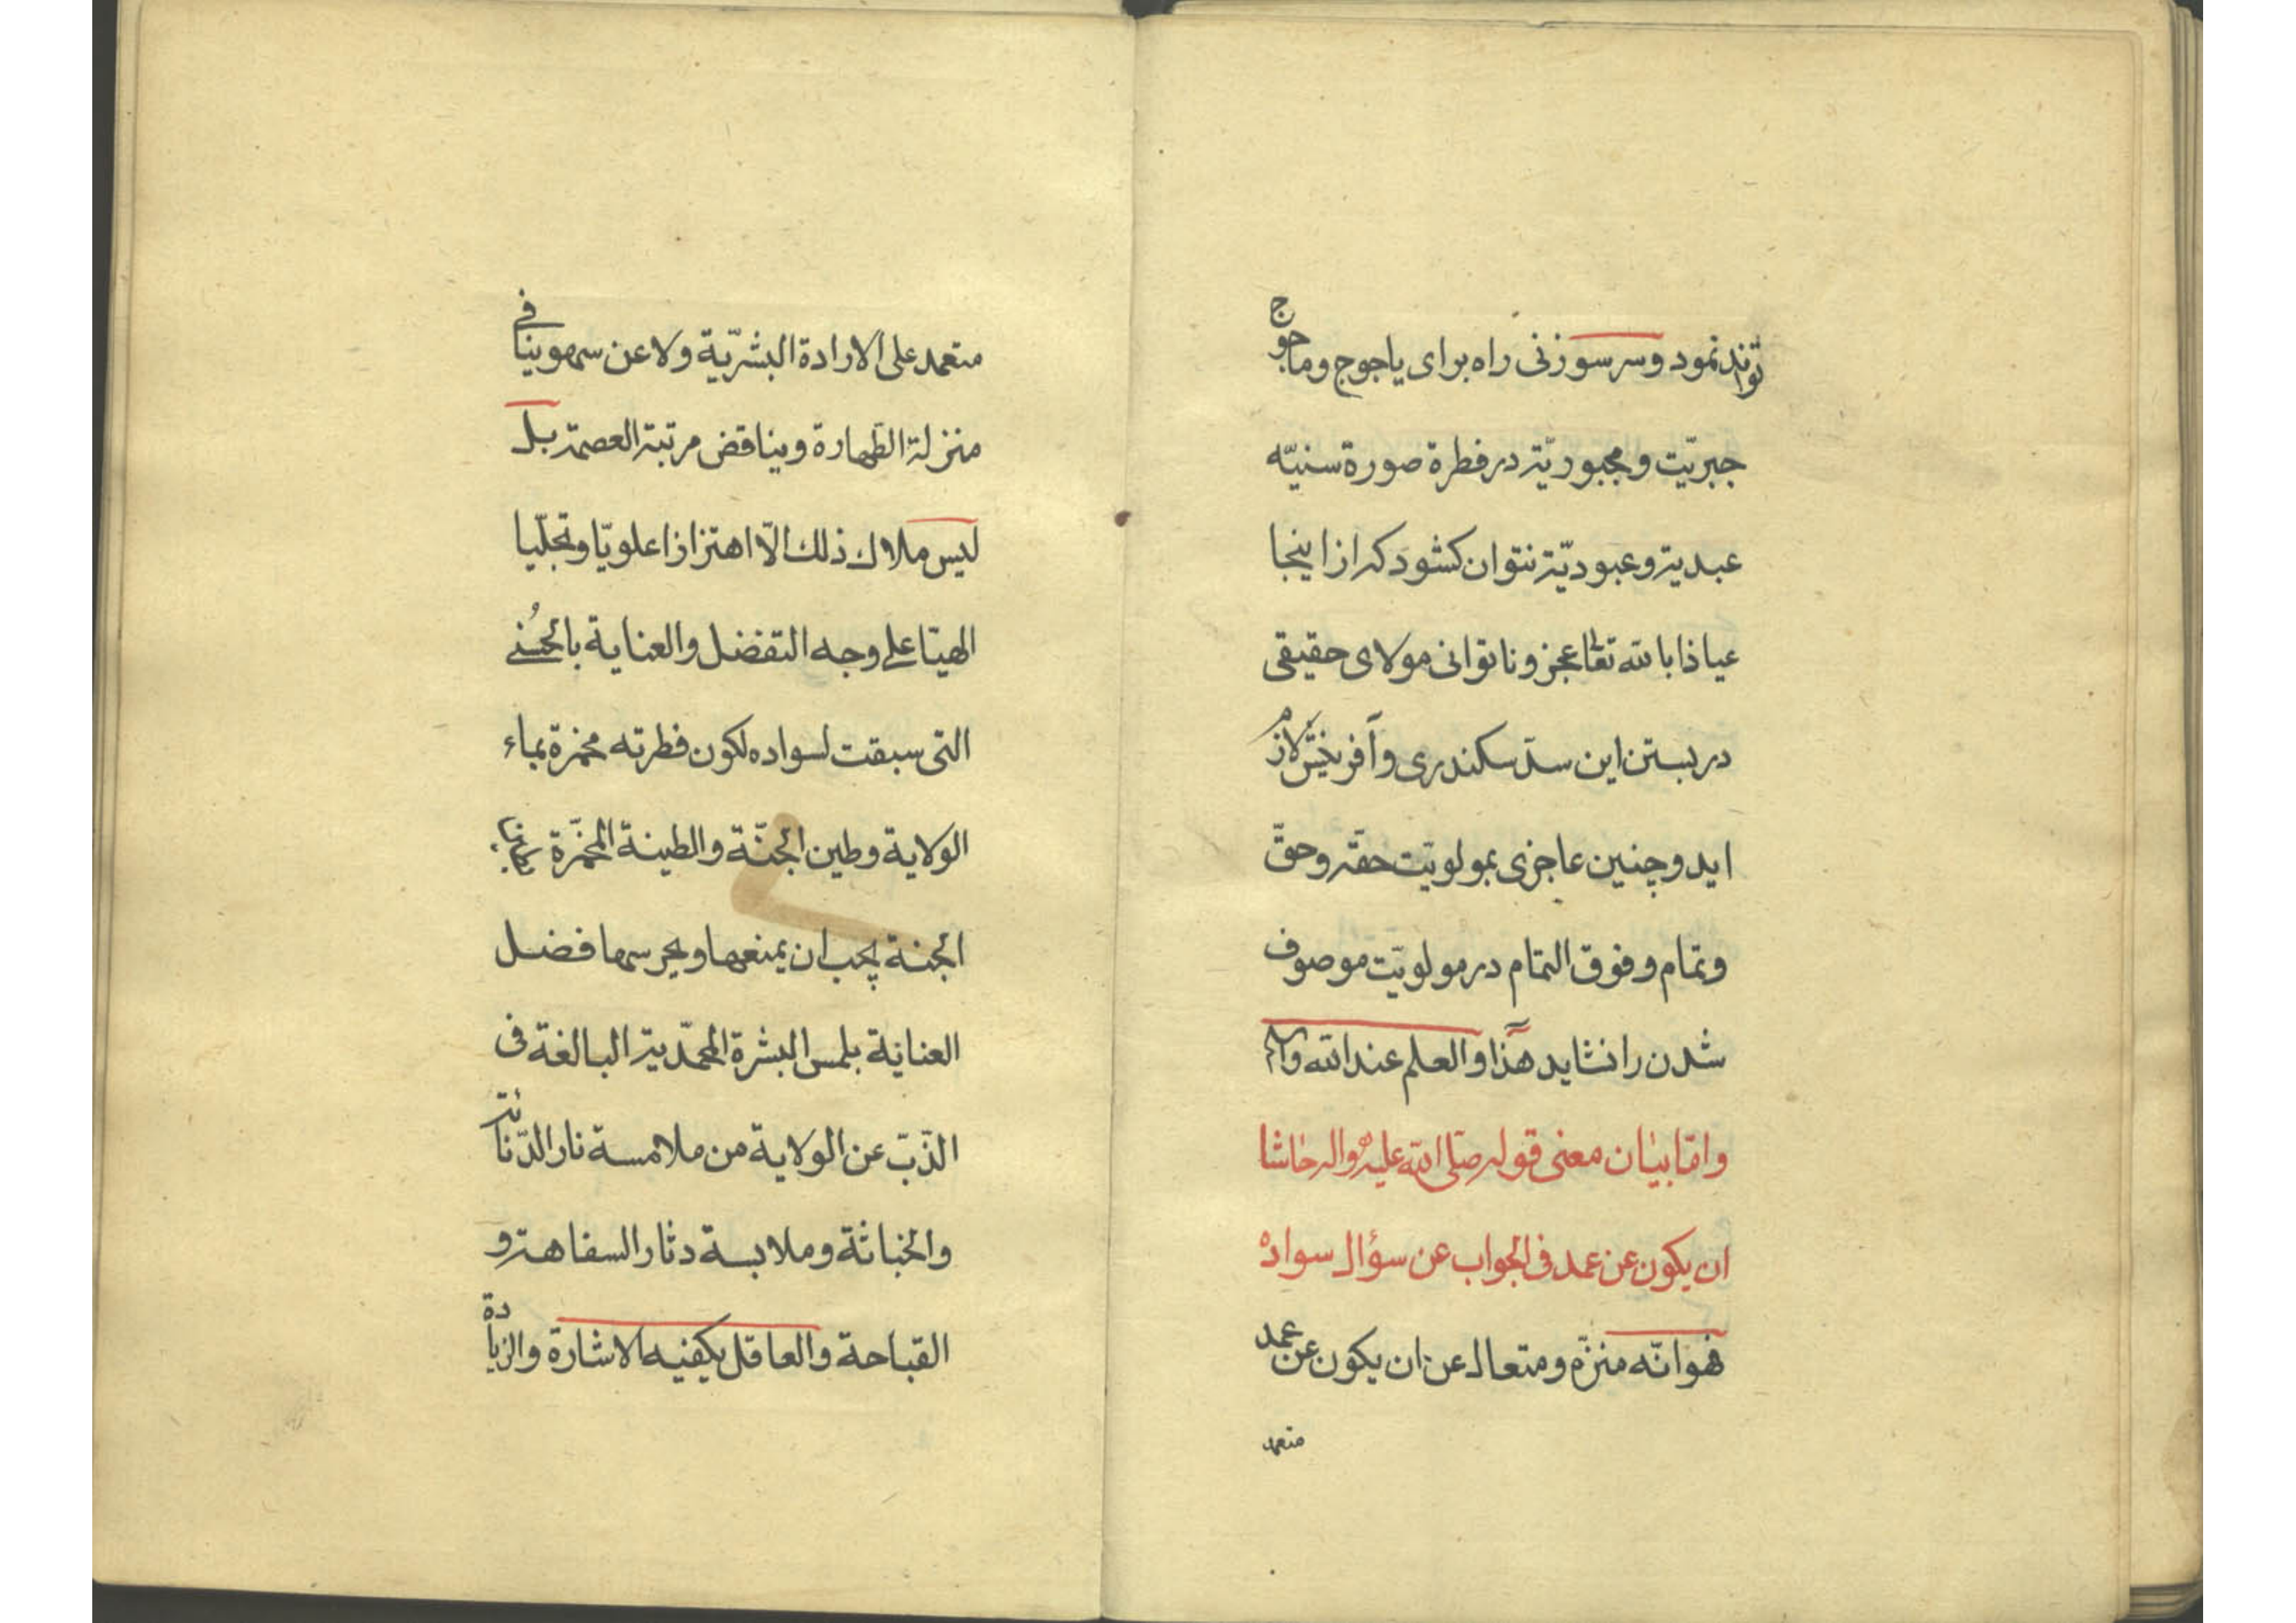 تواند نمود وسر سوزنی راه برای یاجوج وماجوج
جبریّت ومجبوریّة در فطرة صورة سنیّه
عبدیة وعبودیّة نتوان کشود که از اینجا
عیاذا بالله تعالی عجز وناتوانی مولای حقیقی
در بستن این سدّ سکندری وآفرینش لازم
اید وچنین عاجزی بمولویّت حقّه وحقّ
وتمام وفوق التمام در مولویّت موصوف
شدن را نشاید هذا والعلم عند الله
وامّا بیان معنی قوله صلّی الله علیه واله حاشا
ان یکون عن عمد فی الجواب عن سؤال سواده
فهو انّه منزّه ومتعال عن ان یکون عن عمد
متعمد
متعمد علی الارادة البشریّة ولا عن سهو ینافی
منزلة الطّهارة ویناقض مرتبة العصمة بل
لیس ملاك ذلك الّا اهتزازا علویّا وتجلّیا
الهیّا علی وجه التفضل والعنایة بالحُسنی
التی سبقت لسواده لکون فطرته مخمرة بماء
الولایة وطین الجنّة والطینة المخمّرة بماء
الجنة یجب ان یمنعها ویحرسها فضل
العنایة بلمس البشرة المحمّدیة البالغة فی
الذّبّ عن الولایة من ملامسة نار الدّنائة
والخباثة وملابسة دثار السفاهة و
القباحة والعاقل یکفیه الاشارة والزیادة